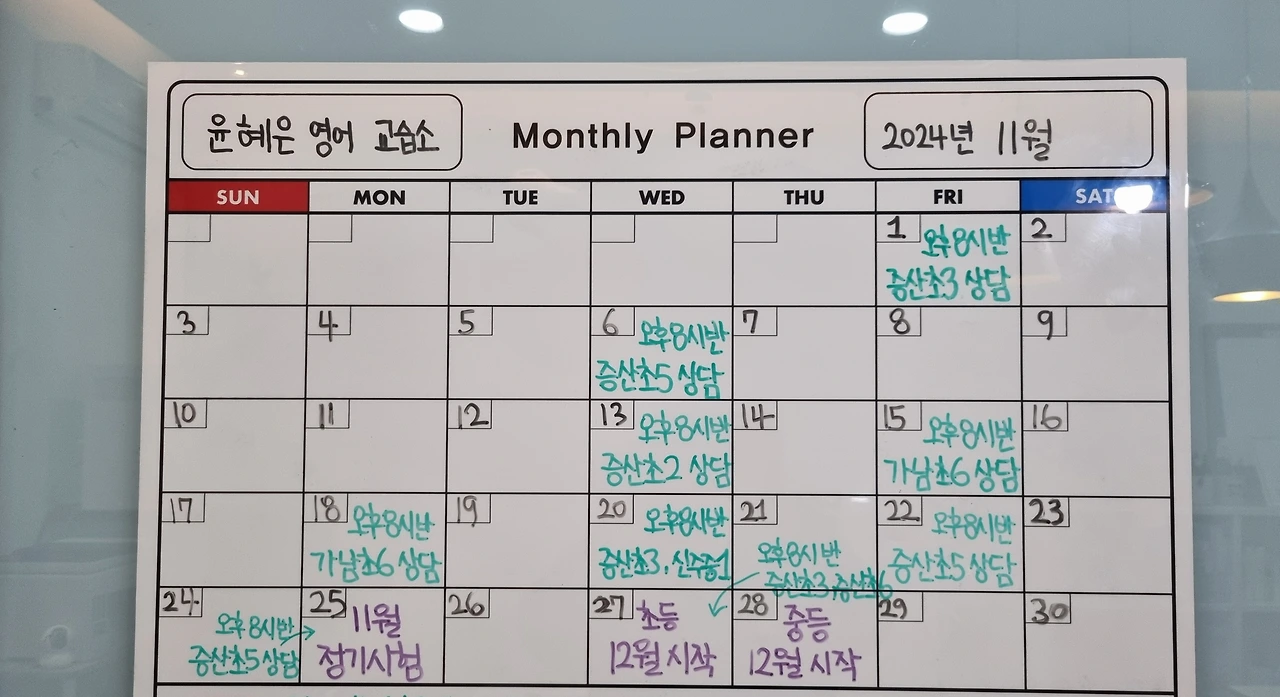 윤혜은 영어 교습소
Monthly Planner
2024년 11월
SUN MON TUE WED THU FRI SAT
1 오후8시반
증산초3 상담
2
3
4
5
6 오후8시반
증산초5 상담
7
8
9
10
11
12
13 오후8시반
증산초2 상담
14
15 오후8시반
가남초6 상담
16
17
18 오후8시반
가남초6 상담
19
20 오후8시반
증산초3, 신주중1
21
오후8시반
증산초3, 증산초6
22 오후8시반
증산초5 상담
23
24
오후8시반
증산초5 상담
25 11월
정기시험
26
27 초등
12월 시작
28 중등
12월 시작
29
30